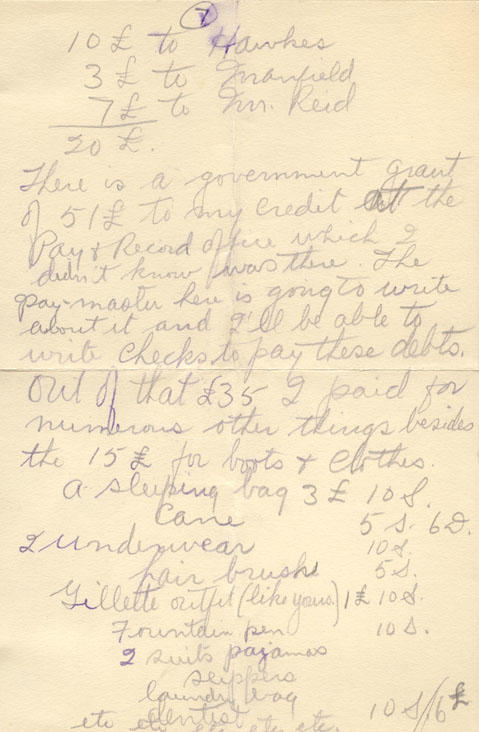 7
10 £ to Hawkes
3 £ to Manfield
7 £ to Mr. Reid
20 £.
There is a government grant
of 51£ to my credit at the
Pay & Record office which I
didn't know was there. The
pay-master here is gong to write
about it and I'll be able to
write checks to pay these debts.
Out of that £35 I paid for
numerous other things besides
the 15 £ for boots & clothes.
A sleeping bag 3 £ 10 S.
Cane 5 S. 6 D.
2 underwear 10 S.
hair brush 5 S.
Gillette outfit (like yours.) 1 £ 10 S.
Fountain pen 10 S.
2 suits pajamas
slippers
laundry bag
dentist 10 S/6 £
etc etc etc etc etc.